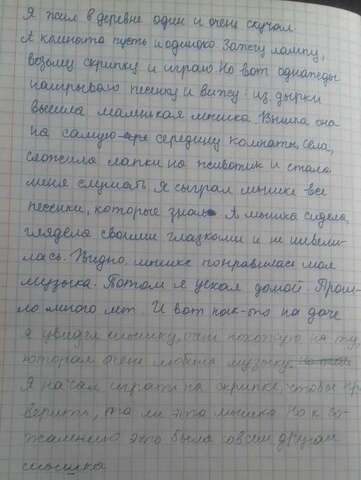 Я жил в деревне один и очень скучал.
А комната пуста и одиноко Зажгу лампу,
возьму скрипку и играю Но вот однажды
наигрываю песенку и вижу: из дырки
вышла маленькая мышка. Вышла она
на самую середину комнаты, села,
сложила лапки на животик и стала
меня слушать Я сыграл мышке все
песенки, которые знал А мышка сидела
глядела своими глазками и не шевели-
лась. Видно, мышке понравилась моя
музыка. Потом я уехал домой. Прош-
ло много лет. И вот как-то на даче
я увидел мышку, очень похожую на ту,
которая очень любила музыку
Я начал играть на скрипке чтобы пр
верить, та ли это мышка Но к со-
жалению это была совсем другая
мышка